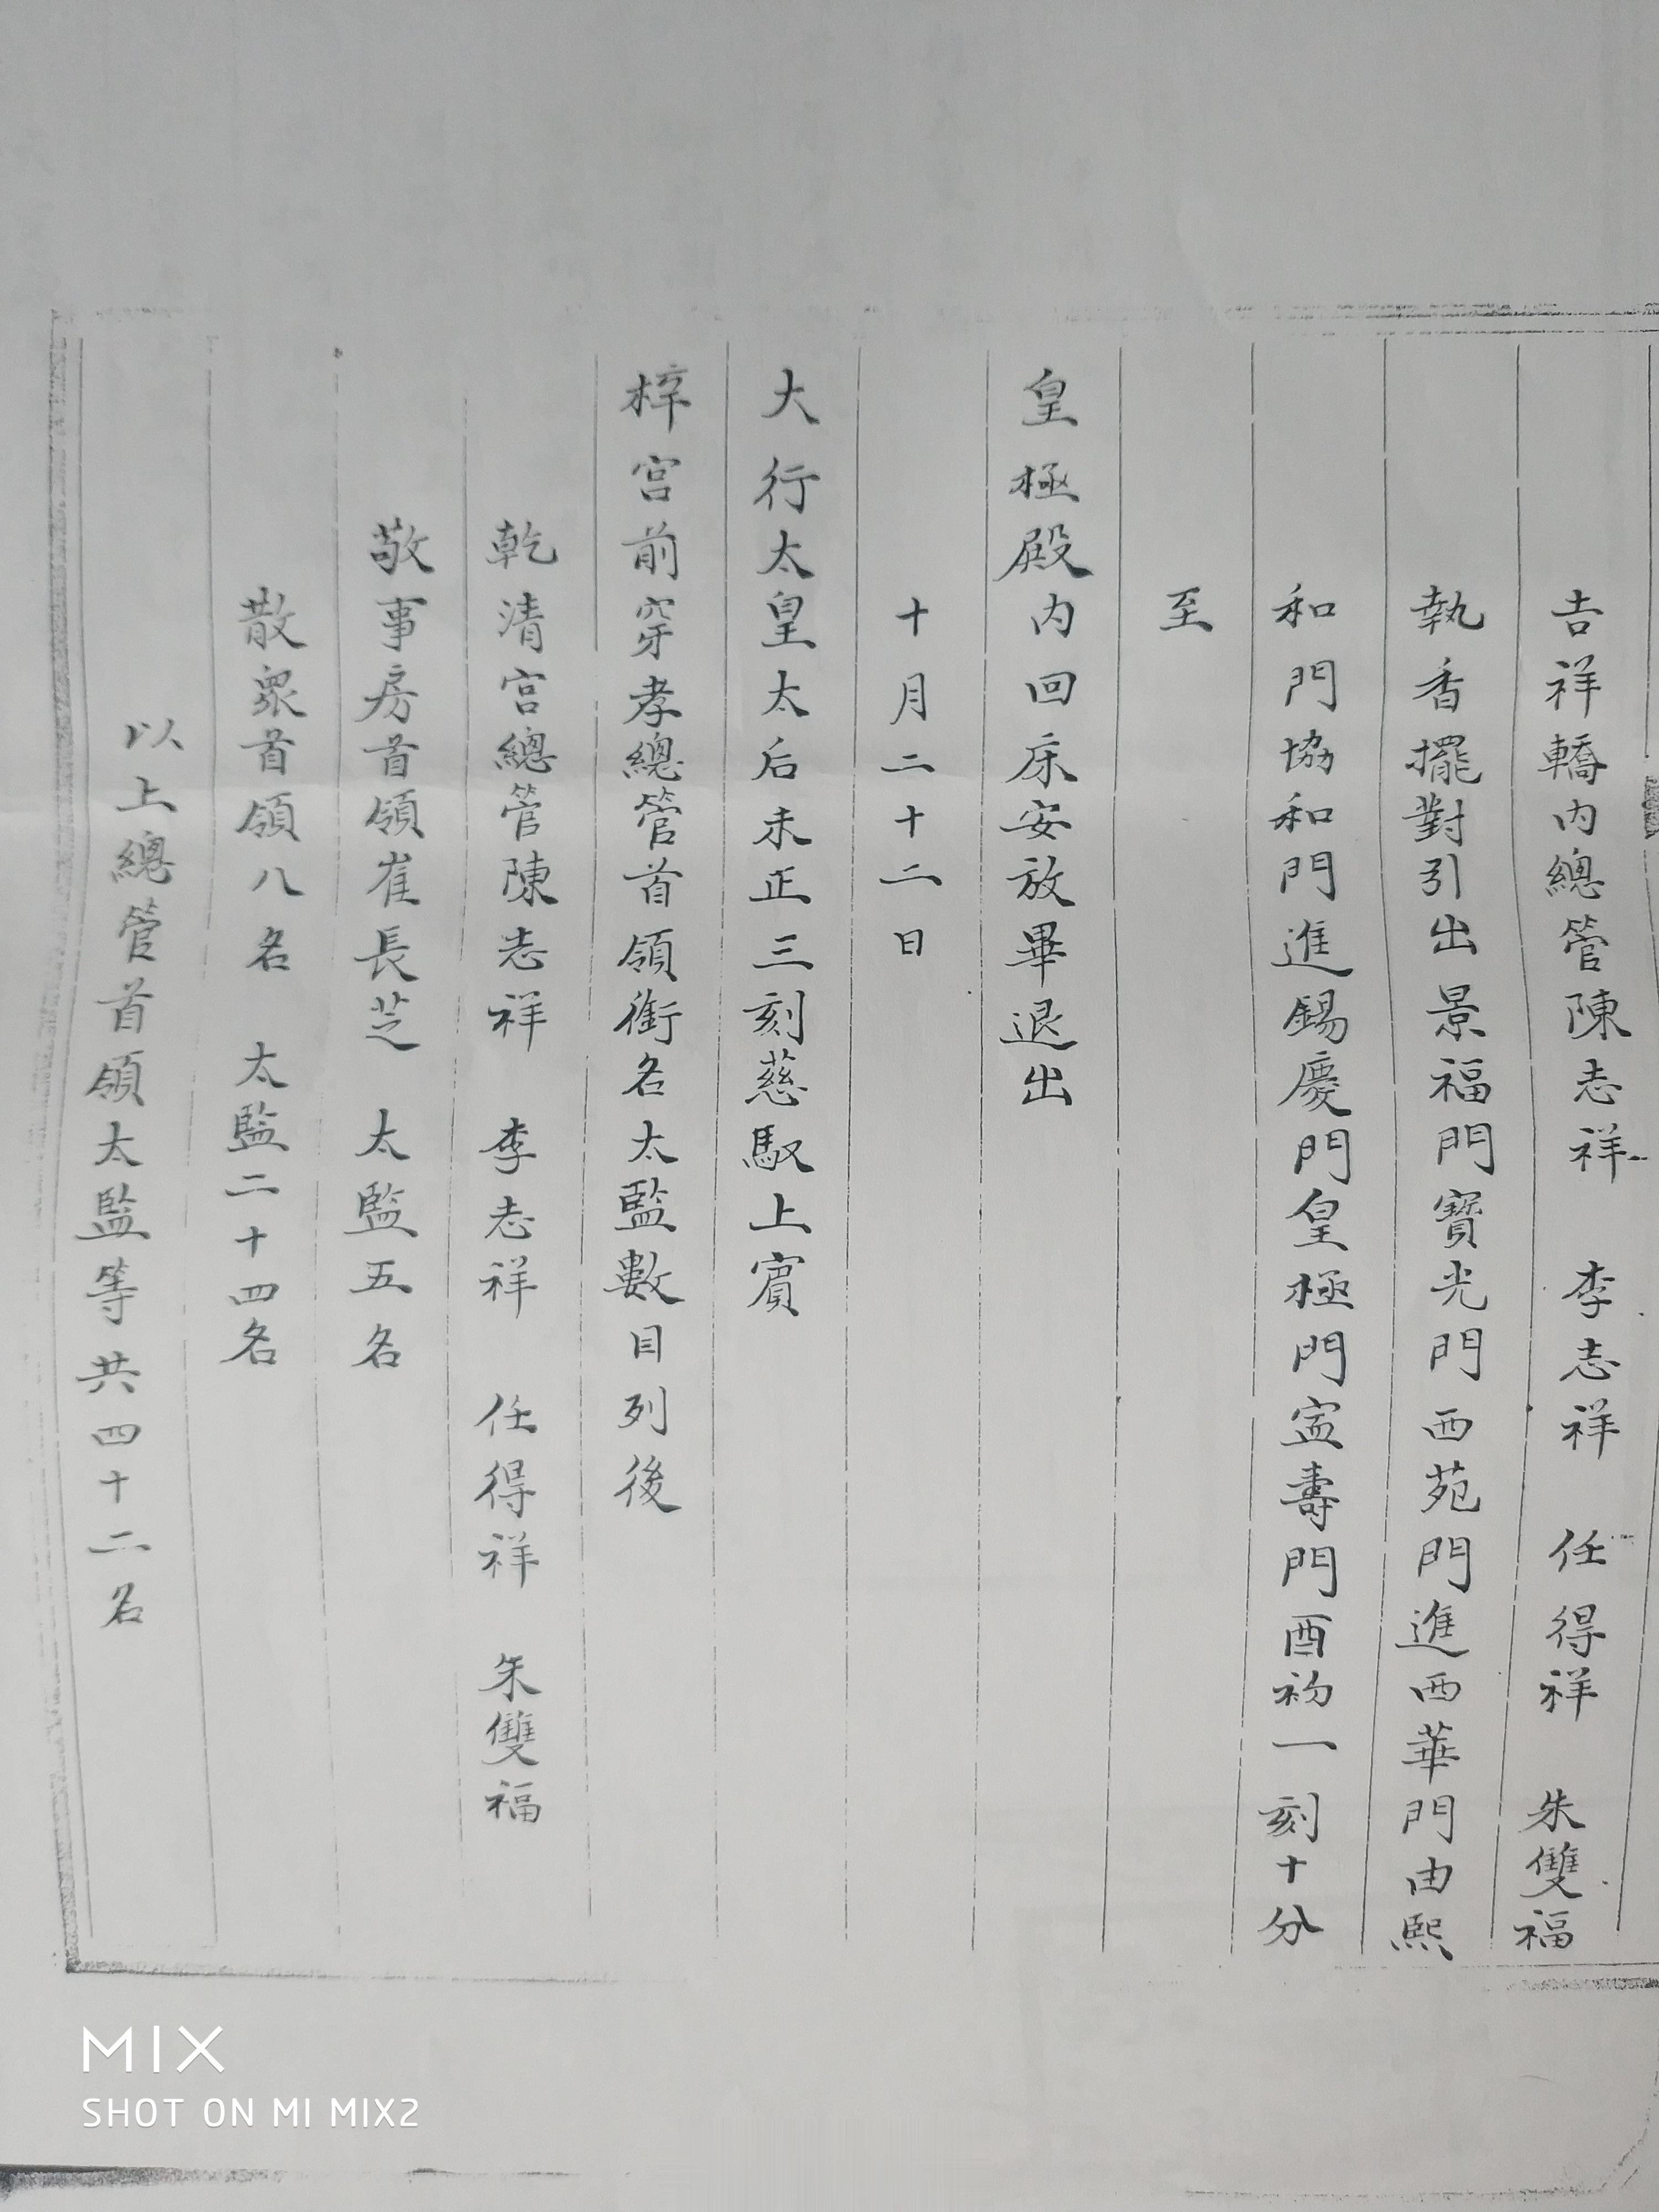 吉祥轎内總管陳志祥　李志祥　任得祥　朱雙福
執香擺對引出景福門寶光門西苑門進西華門由熙
和門協和門進錫慶門皇極門寍壽門酉初一刻十分
至
皇極殿内回床安放畢退出
十月二十二日
大行太皇太后未正三刻慈馭上賓
梓宫前穿孝總管首領銜名太監數目列後
乾清宫總管陳志祥　李志祥　任得祥　朱雙福
敬事房首領崔長芝　太監五名
散衆首領八名　太監二十四名
以上總管首領太監等共四十二名
MIX
SHOT ON MI MIX2